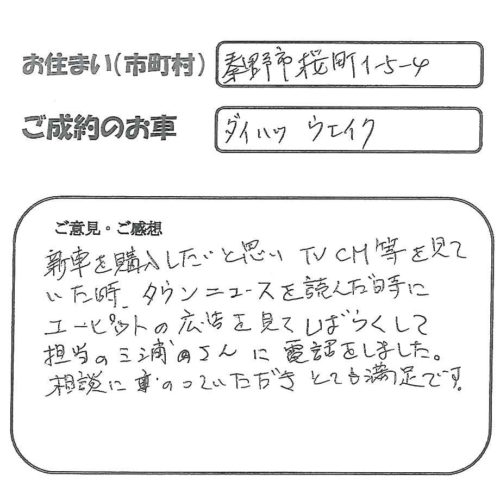 お住まい(市町村) 秦野市桜町1-5-4
ご成約のお車 ダイハツ ウエイク
ご意見・ご感想
新車を購入したいと思い TV CM等を見て
いた時、タウンニュースを読んだ時に
ユーピットの広告を見てしばらくして
担当の三浦さんに電話をしました。
相談にものっていただきとても満足です。